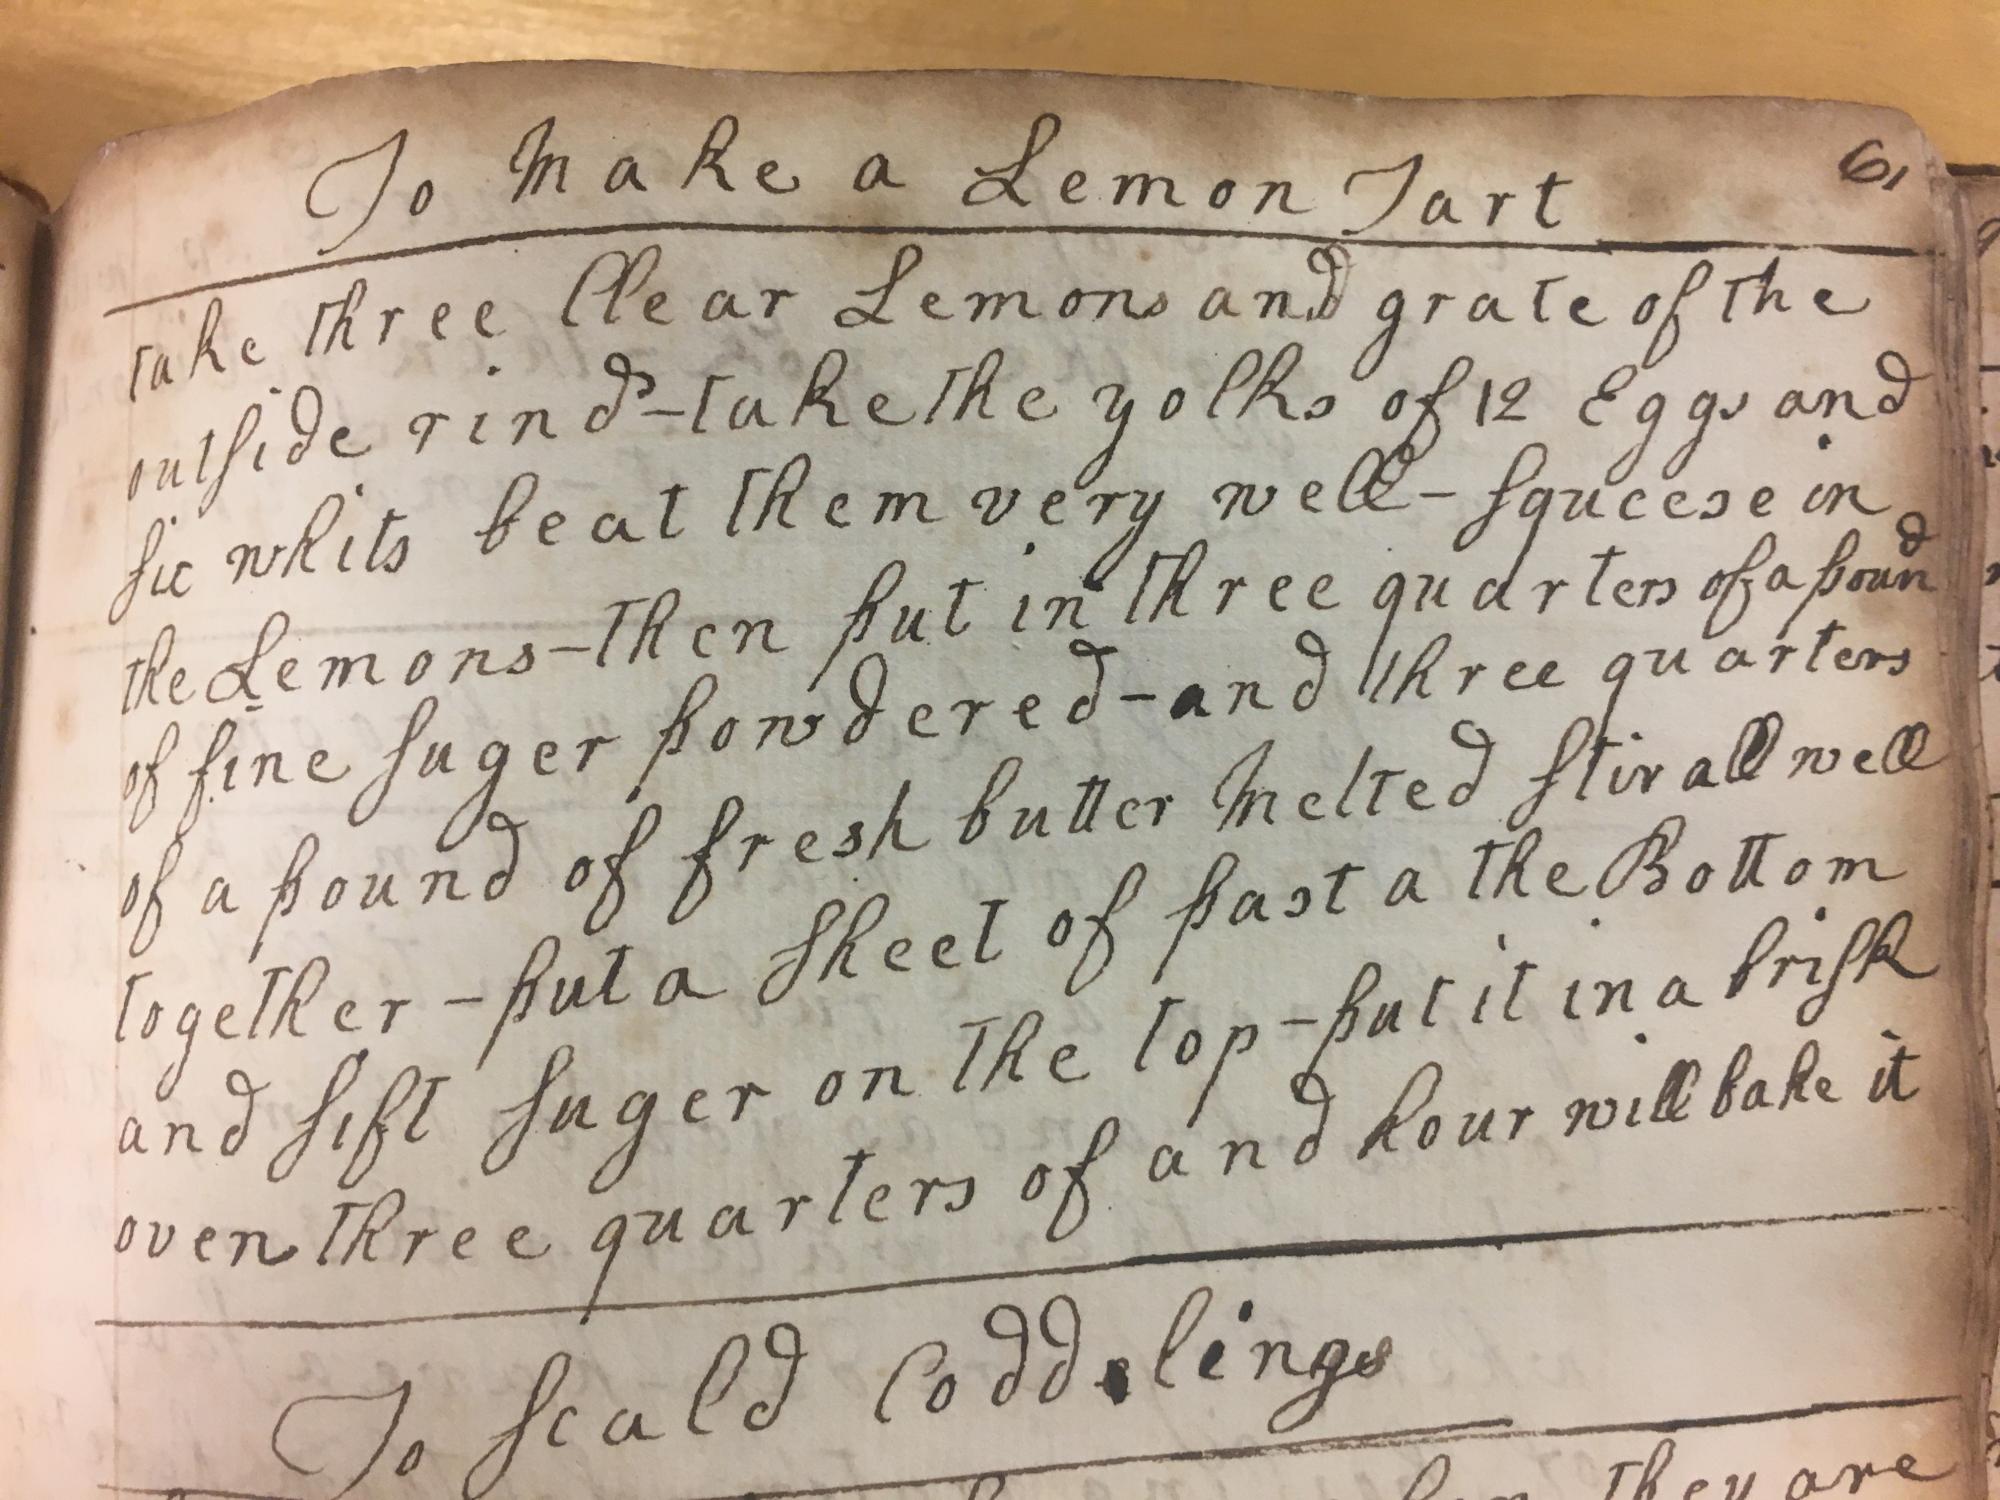 61
To Make a Lemon Tart
take three Clear Lemons and grate of the
outside rind - take the yolks of 12 Eggs and
sic whits beat them very well - squeese in
the Lemons - then put in three quarters of a pound
of fine suger powdered - and three quarters
of a pound of fresh butter Melted stir all well
together - put a sheet of past a the Bottom
and sift suger on the top - put it in a brisk
oven three quarters of and hour will bake it
To scald Coddlings
they are